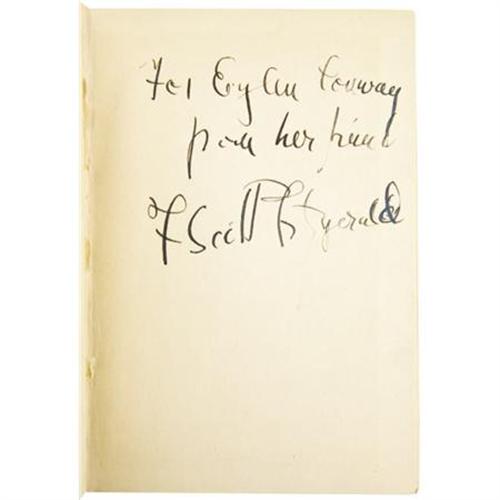 For Conway
from her friend
F Scott Fitzgerald